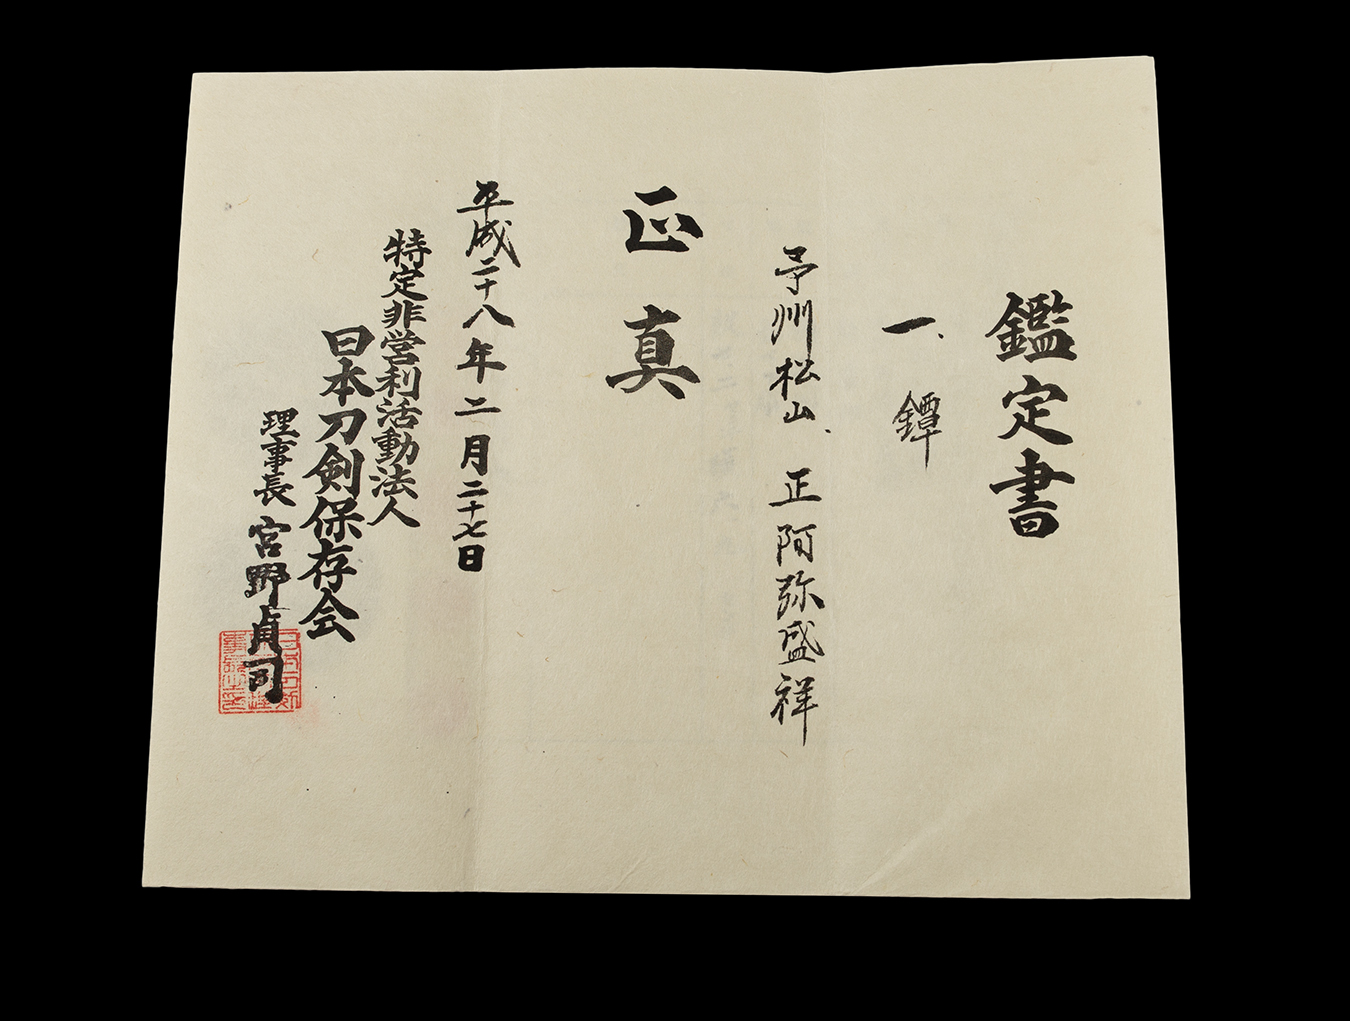 鑑定書
一、鐔
予州松山、正阿弥盛祥
正真
平成二十八年二月二十七日
特定非営利活動法人
日本刀剣保存会
理事長 宮野貞司